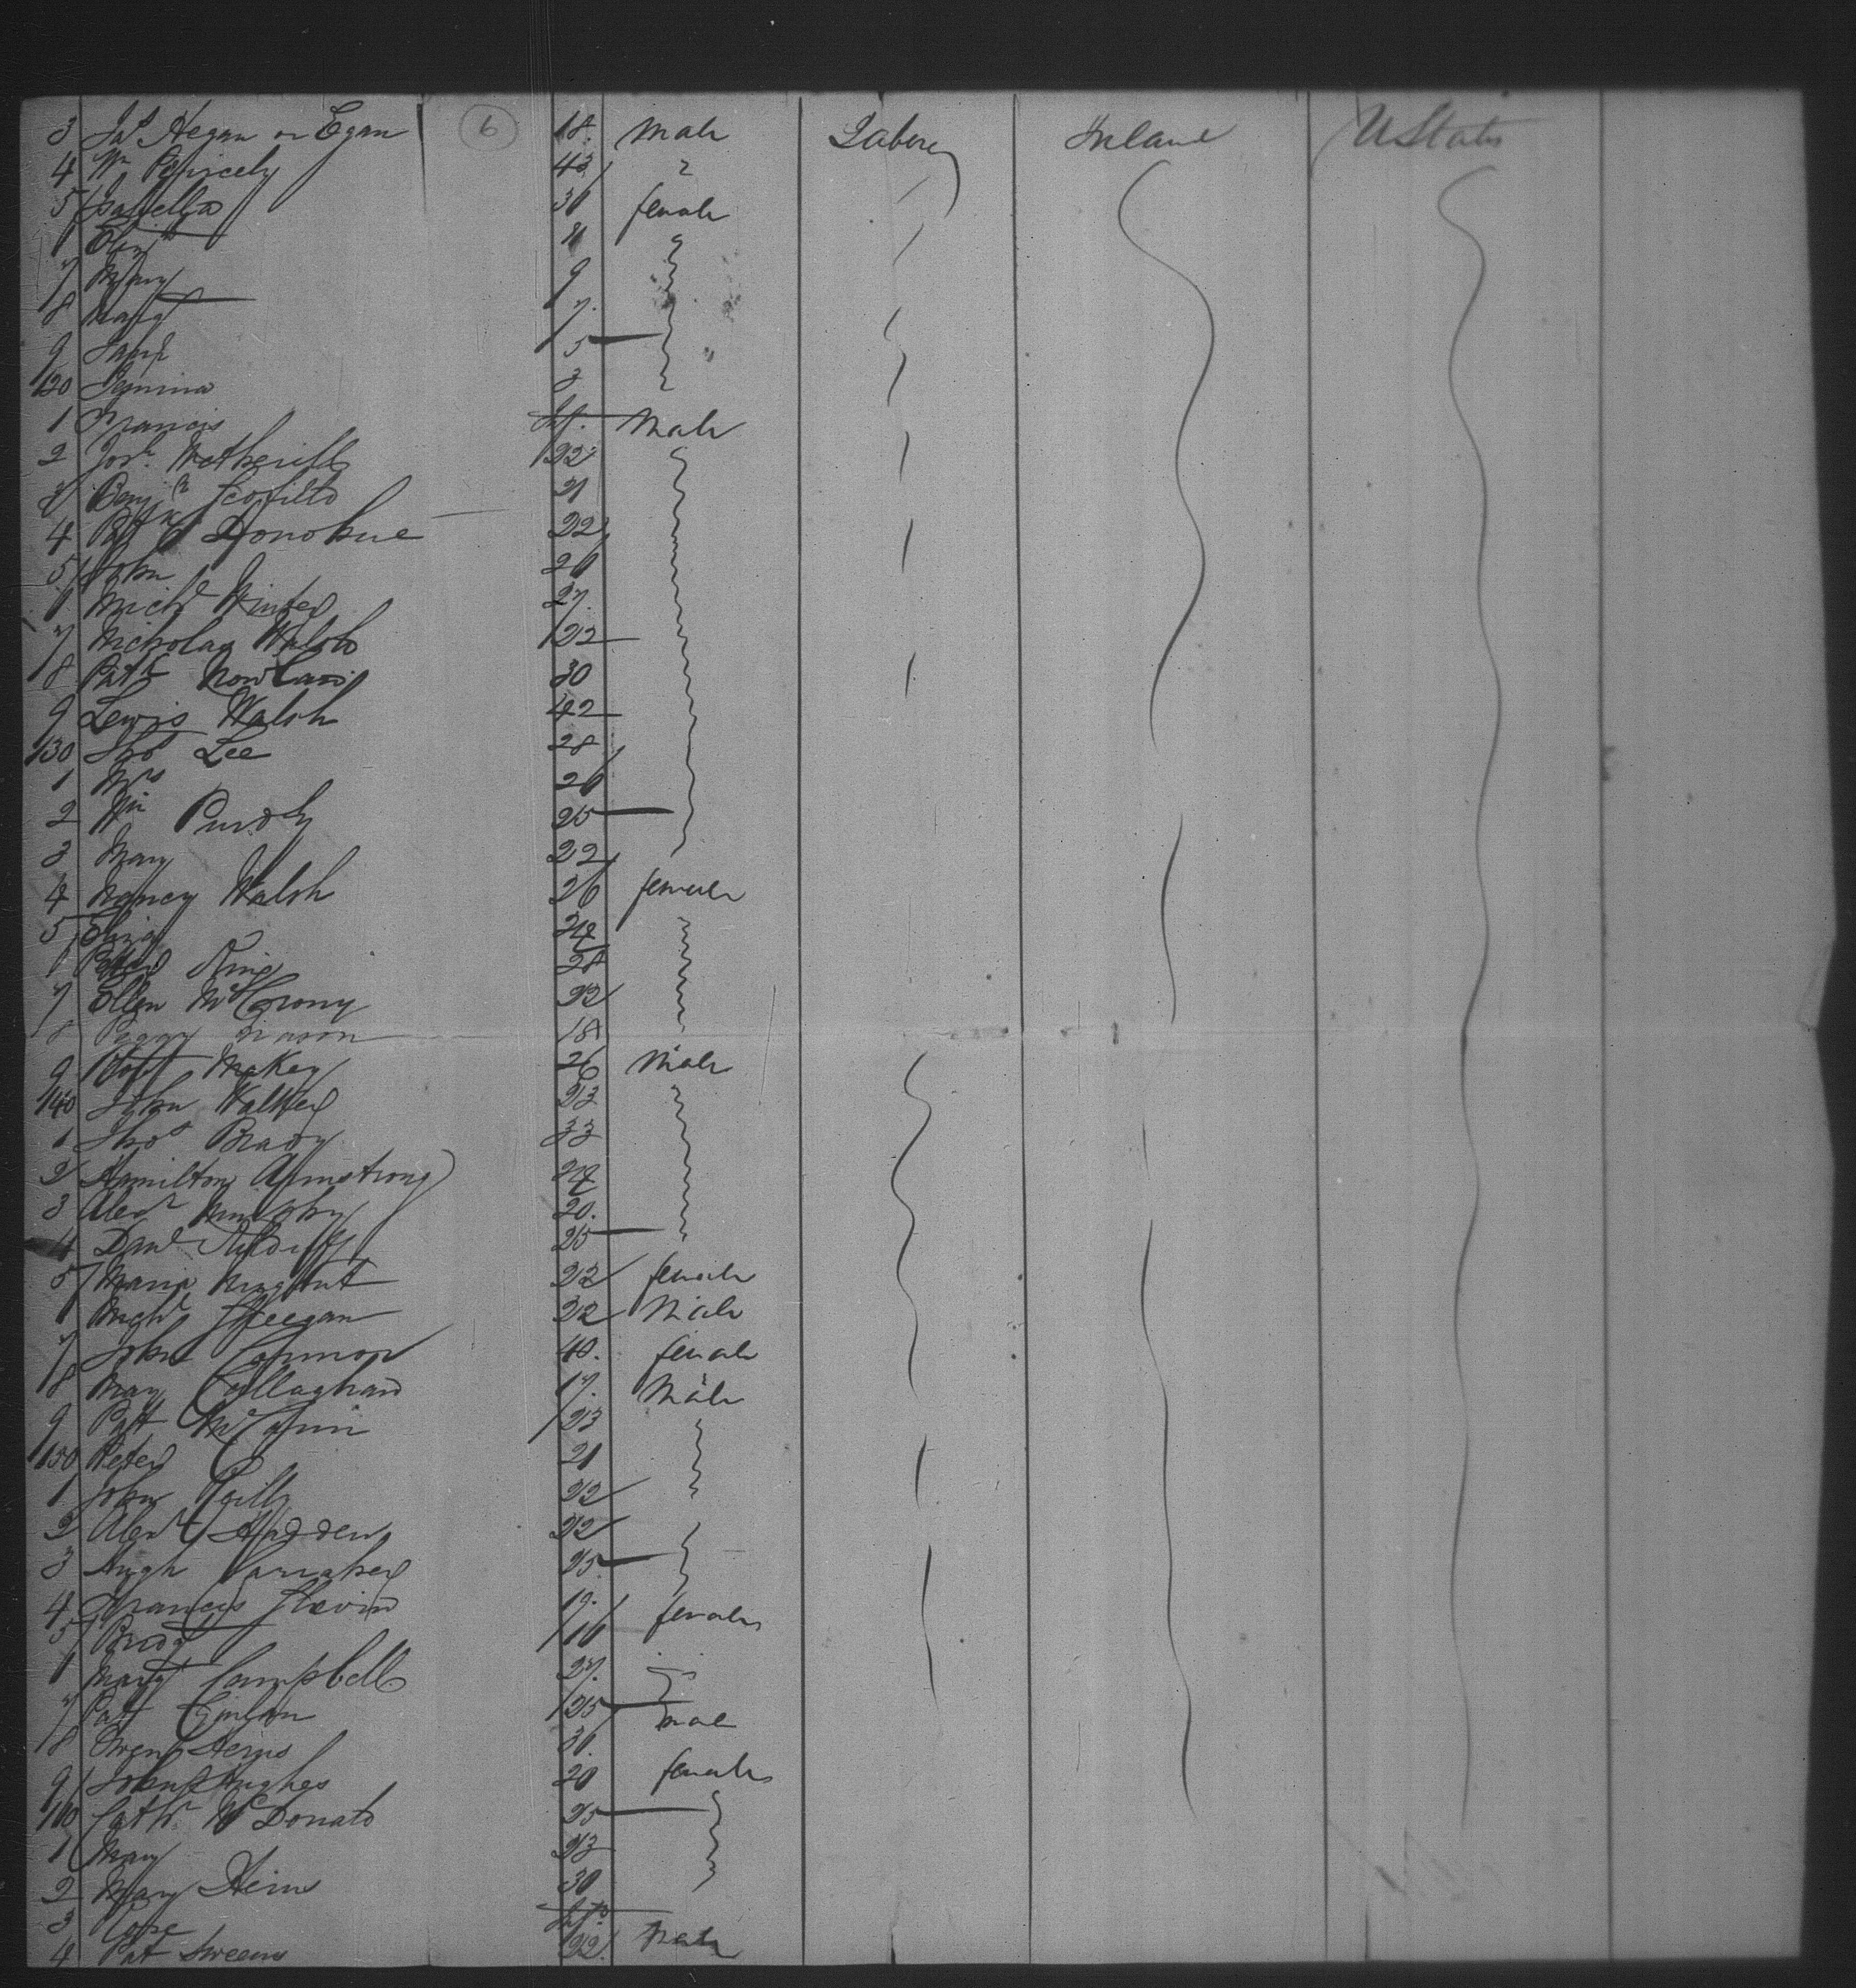 6
3 Jas Hegan or Egan 18. Male Laborer Ireland U States
4 Wm 43 "
5 Isabella 36 female
6 Eliz 11
7 Mary 9
8 Marg 7.
9 Jane 5
120 Jemima 3
1 Francis Inft. Male
2 Josh. Wetherill 22
3 Benjn Scofield 21
4 Patk O Donohue 22
5 John 26
6 Michl Winter 27.
7 Nicholas Walsh 22
8 Patk Nowlan 30
9 Lewis Walsh 42
130 Thos Lee 28
1 Mrs 26
2 Wm Purdy 25
3 Mary 22
4 Nancy Walsh 26 female
5 Eliza 24
6 King 28
7 Ellen 22
8 Peggy 18
9 Robt McKey 26 Male
140 John Walker 23
1 Thos Brady 33
2 Hamilton Armstrong 24
3 Alexr Murphy 20.
4 Danl 25
5 Maria Nugent 22 female
6 Michl 22 Male
7 John Cannon 40. female
8 Mary Callaghan 17. Male
9 Patt McCann 23
150 Peter 21
1 John Reilly 22
2 Alexr Hadden 22
3 Hugh 25
4 Francis Slevin 19. female
5 Bridgt 16
6 Margt Campbell 27.
7 Patt 25 male
8 Owen Heins 36.
9 John Hughes 20 female
160 Cathr McDonald 25
1 Mary 23
2 Mary Heins 30
3 Rose Inft.
4 Pat Sweeny 22. Male